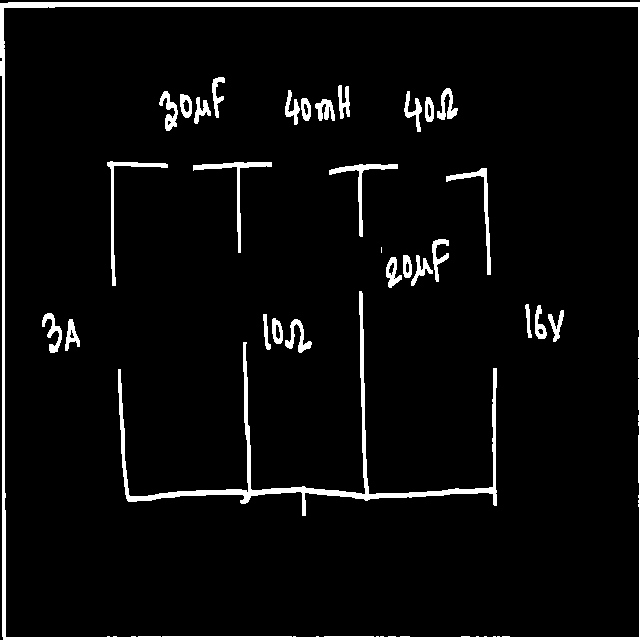 30μF 40mH 40Ω
20μF
3A 10Ω 16V